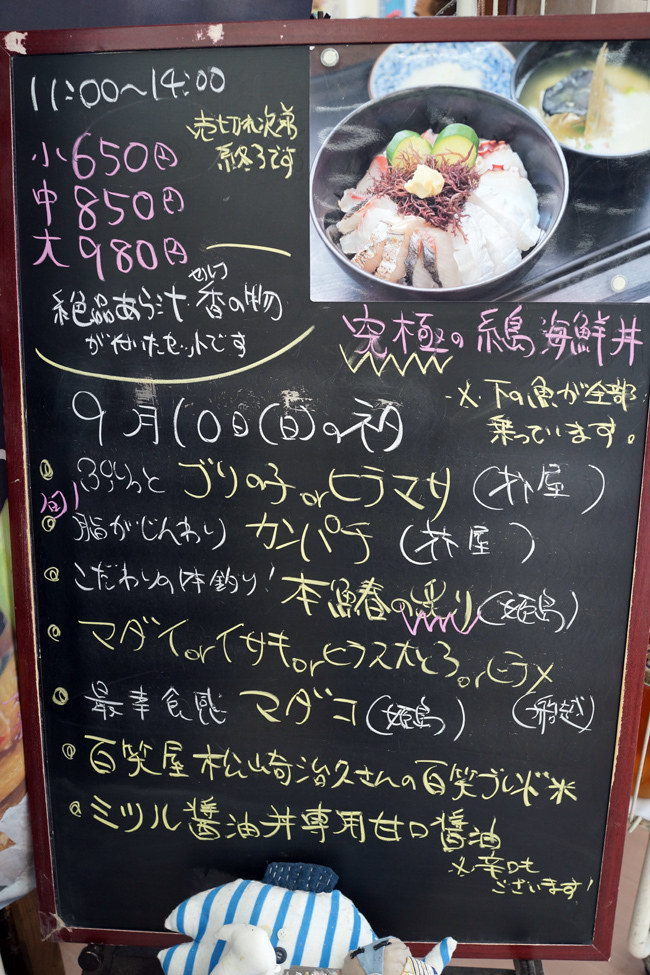 11:00〜14:00
売切れ次第
終了です
小650円
中850円
大980円
絶品あら汁 香の物
が付いたセットです
究極の 糸島 海鮮丼
※下の魚が全部
乗っています。
9月10日(日)の
ゴリの子orヒラマサ
脂がじんわり カンパチ
こだわりの一本釣り! 本鰆 (姫島)
マダイorイサキorヒラス大とろorヒラメ
食感 マダコ (姫島) (船越)
百笑屋 松崎治久さんの百笑ブレンド米
ミツル醤油丼専用甘口醤油
※辛口も
ございます!